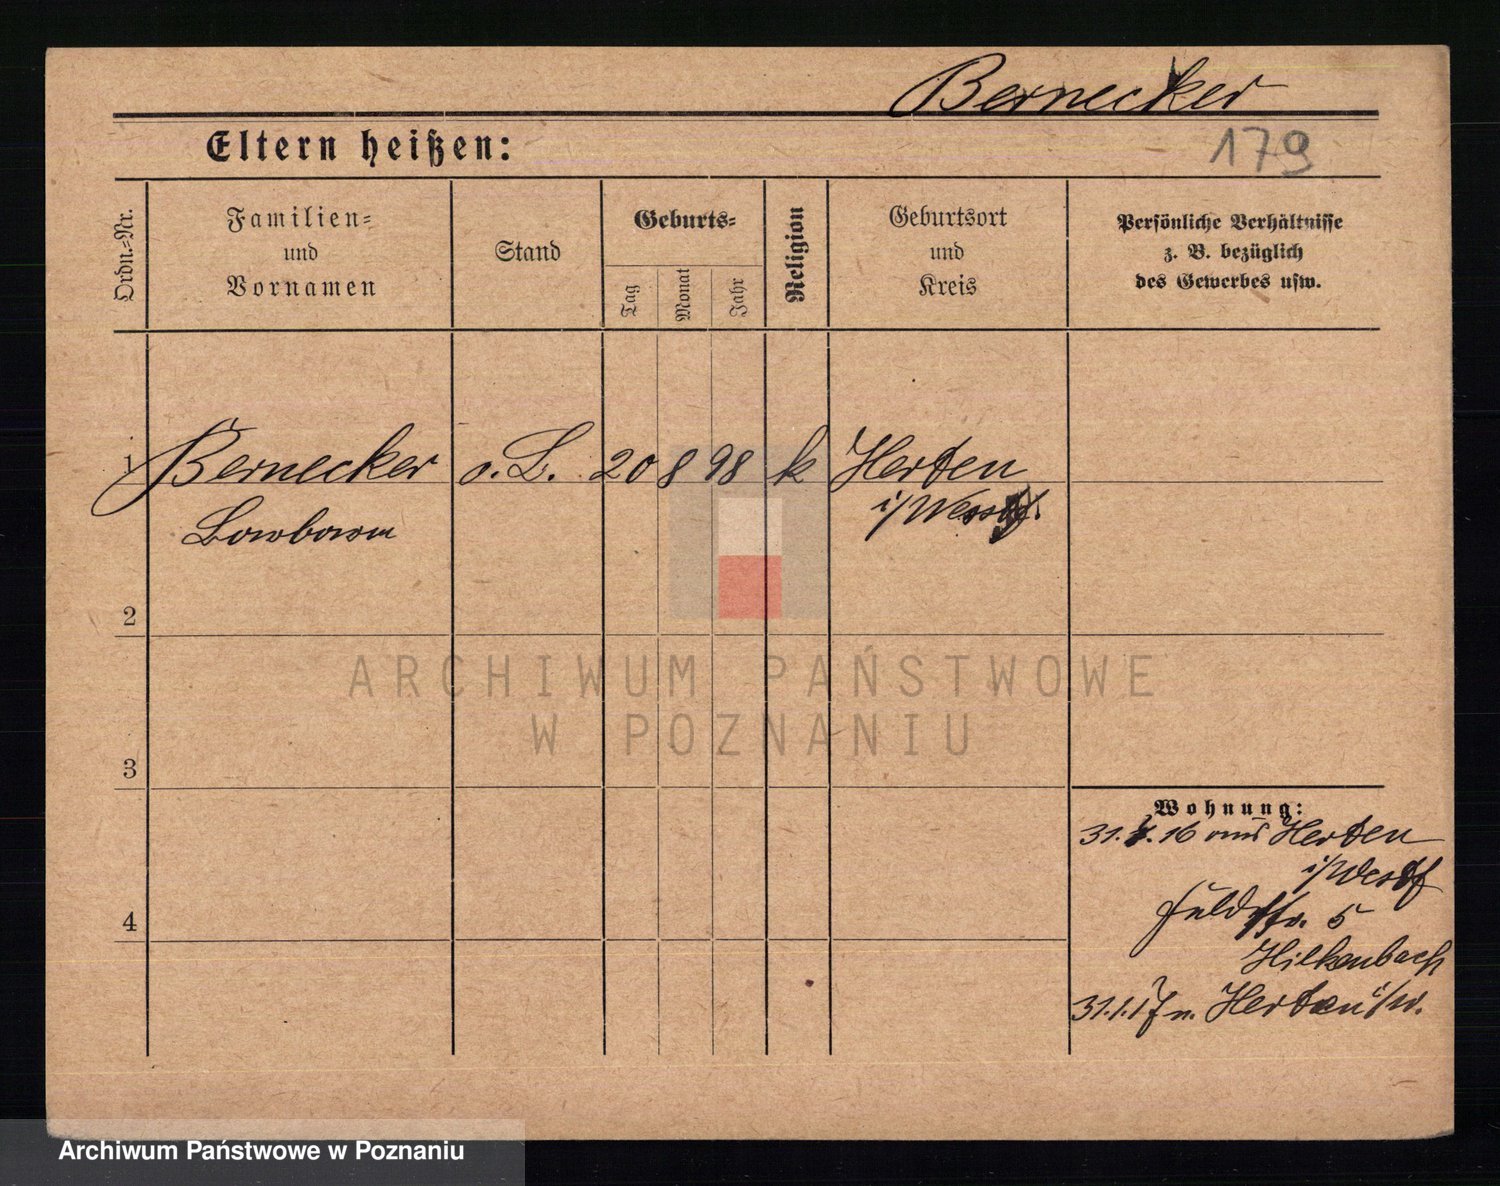 Bernecker
Eltern heißen:
179
Ordn.=Nr.
Familien=
und
Vornamen
Stand
Geburts=
Tag
Monat
Jahr
Religion
Geburtsort
und
Kreis
Persönliche Verhältnisse
z. B. bezüglich
des Gewerbes usw.
1 Bernecker o. L. 20 8 98 k Herten
i/Westf.
2
3
4
Wohnung:
31. 16 aus Herten
i/Westf
str. 5
Hilkenbach
31.1.17 n. Herten i/W.
ARCHIWUM PAŃSTWOWE
W POZNANIU
Archiwum Państwowe w Poznaniu